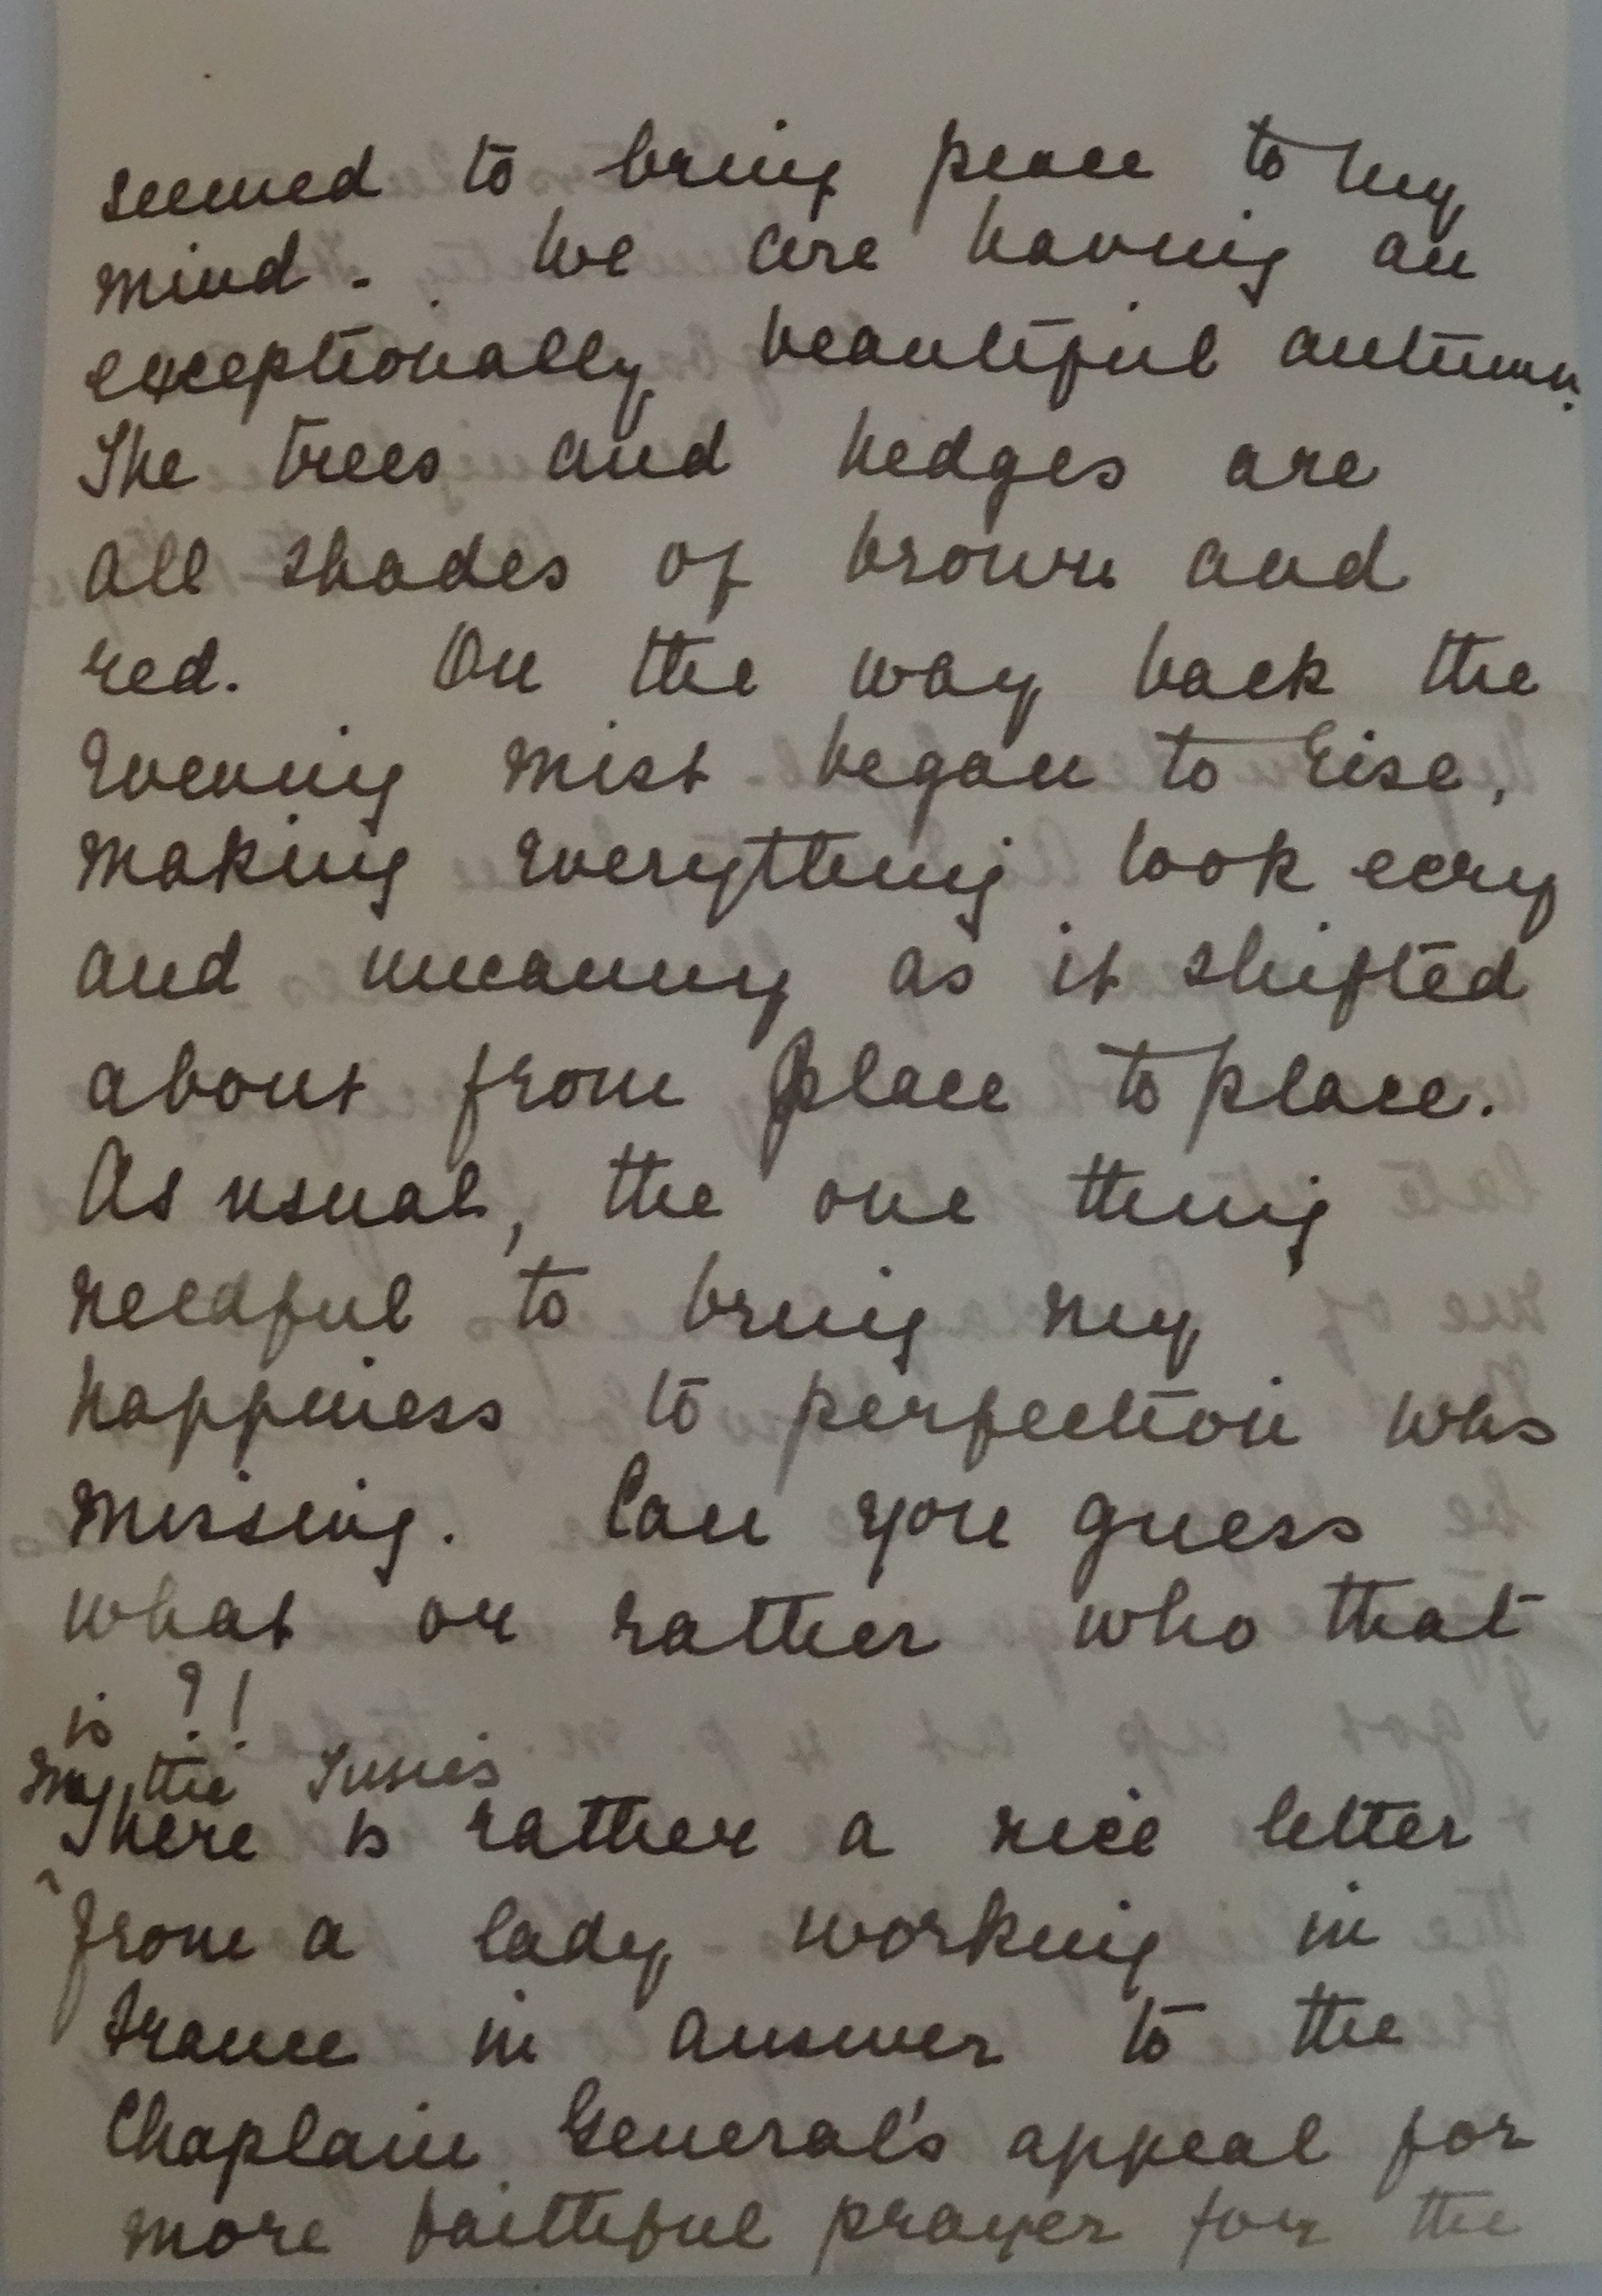 seemed to bring peace to my
mind. We are having an
exceptionally beautiful autumn.
The trees and hedges are
all shades of brown and
red. On the way back the
evening mist began to rise,
making everything look eery
and uncanny as it shifted
about from place to place.
As usual, the one thing
needful to bring my
happiness to perfection was
missing. Can you guess
what or rather who that
is ?!
in the Times
There is rather a nice letter
from a lady working in
France in answer to the
Chaplain General's appeal for
more faithful prayer for the